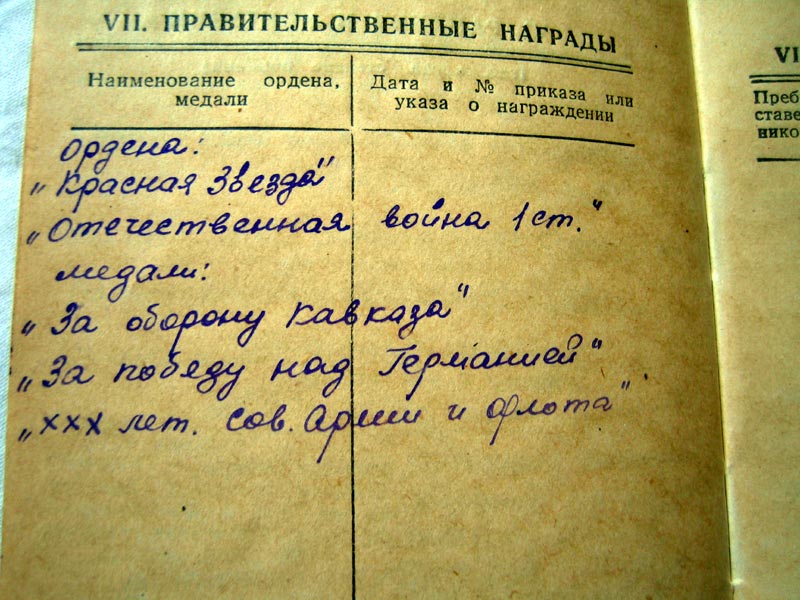 VII. ПРАВИТЕЛЬСТВЕННЫЕ НАГРАДЫ
Наименование ордена,
медали
Дата и № приказа или
указа о награждении
ордена:
„Красная Звезда"
„Отечественная война 1 ст."
медали:
„За оборону Кавказа"
„За победу над Германией"
„ххх лет. Сов. Армии и Флота"
VI
Преб
ставе
нико